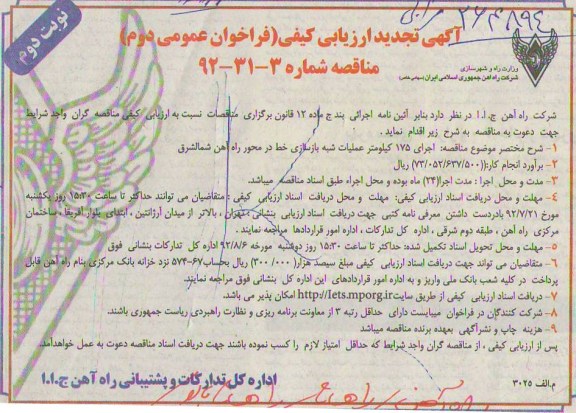 ۲۶۴۸۹۴
نوبت دوم
آگهی تجدید ارزیابی کیفی(فراخوان عمومی دوم)
مناقصه شماره ۳-۳۱-۹۲
وزارت راه و شهرسازی
شرکت راه آهن جمهوری اسلامی ایران (سهامی خاص)
شرکت راه آهن ج.ا.ا در نظر دارد بنابر آئین نامه اجرائی بند ج ماده ۱۲ قانون برگزاری مناقصات نسبت به ارزیابی کیفی مناقصه گران واجد شرایط
جهت دعوت به مناقصه به شرح زیر اقدام نماید .
۱- شرح مختصر موضوع مناقصه: اجرای ۱۷۵ کیلومتر عملیات شبه بازسازی خط در محور راه آهن شمالشرق
۲- برآورد انجام کار:(۷۳/۰۵۲/۶۳۷/۵۰۰) ریال
۳- مدت و محل اجرا : مدت اجرا(۲۴) ماه بوده و محل اجراء طبق اسناد مناقصه میباشد.
۴- مهلت و محل دریافت اسناد ارزیابی کیفی: مهلت و محل دریافت اسناد ارزیابی کیفی : متقاضیان می توانند حداکثر تا ساعت ۱۵:۳۰ روز یکشنبه
مورخ ۹۲/۷/۲۱ بادردست داشتن معرفی نامه کتبی جهت دریافت اسناد ارزیابی بنشانی :تهران ، بالاتر از میدان آرژانتین ، ابتدای بلوار آفریقا ، ساختمان
مرکزی راه آهن ، طبقه دوم شرقی ، اداره کل تدارکات ، اداره امور قراردادها مراجعه نمایند .
۵- مهلت و محل تحویل اسناد تکمیل شده: حداکثر تا ساعت ۱۵:۳۰ روز دوشنبه مورخه ۹۲/۸/۶ اداره کل تدارکات بنشانی فوق
۶- متقاضیان می تواند جهت دریافت اسناد ارزیابی کیفی مبلغ سیصد هزار( ۳۰۰/۰۰۰) ریال بحساب ۶۷-۵۷۴ نزد خزانه بانک مرکزی بنام راه آهن قابل
پرداخت در کلیه شعب بانک ملی واریز و به اداره امور قراردادهای این اداره کل بنشانی فوق مراجعه نمایند.
۷- دریافت اسناد ارزیابی کیفی از طریق سایت http://Iets.mporg.ir امکان پذیر می باشد.
۸- شرکت کنندگان در فراخوان میبایست دارای حداقل رتبه ۳ از معاونت برنامه ریزی و نظارت راهبردی ریاست جمهوری باشند.
۹- هزینه چاپ و نشرآگهی بعهده برنده مناقصه میباشد
پس از ارزیابی کیفی ، از مناقصه گران واجد شرایط که حداقل امتیاز لازم را کسب نموده باشند جهت دریافت اسناد مناقصه دعوت به عمل خواهدآمد.
م.الف ۳۰۲۵
اداره کل تدارکات و پشتیبانی راه آهن ج.ا.ا